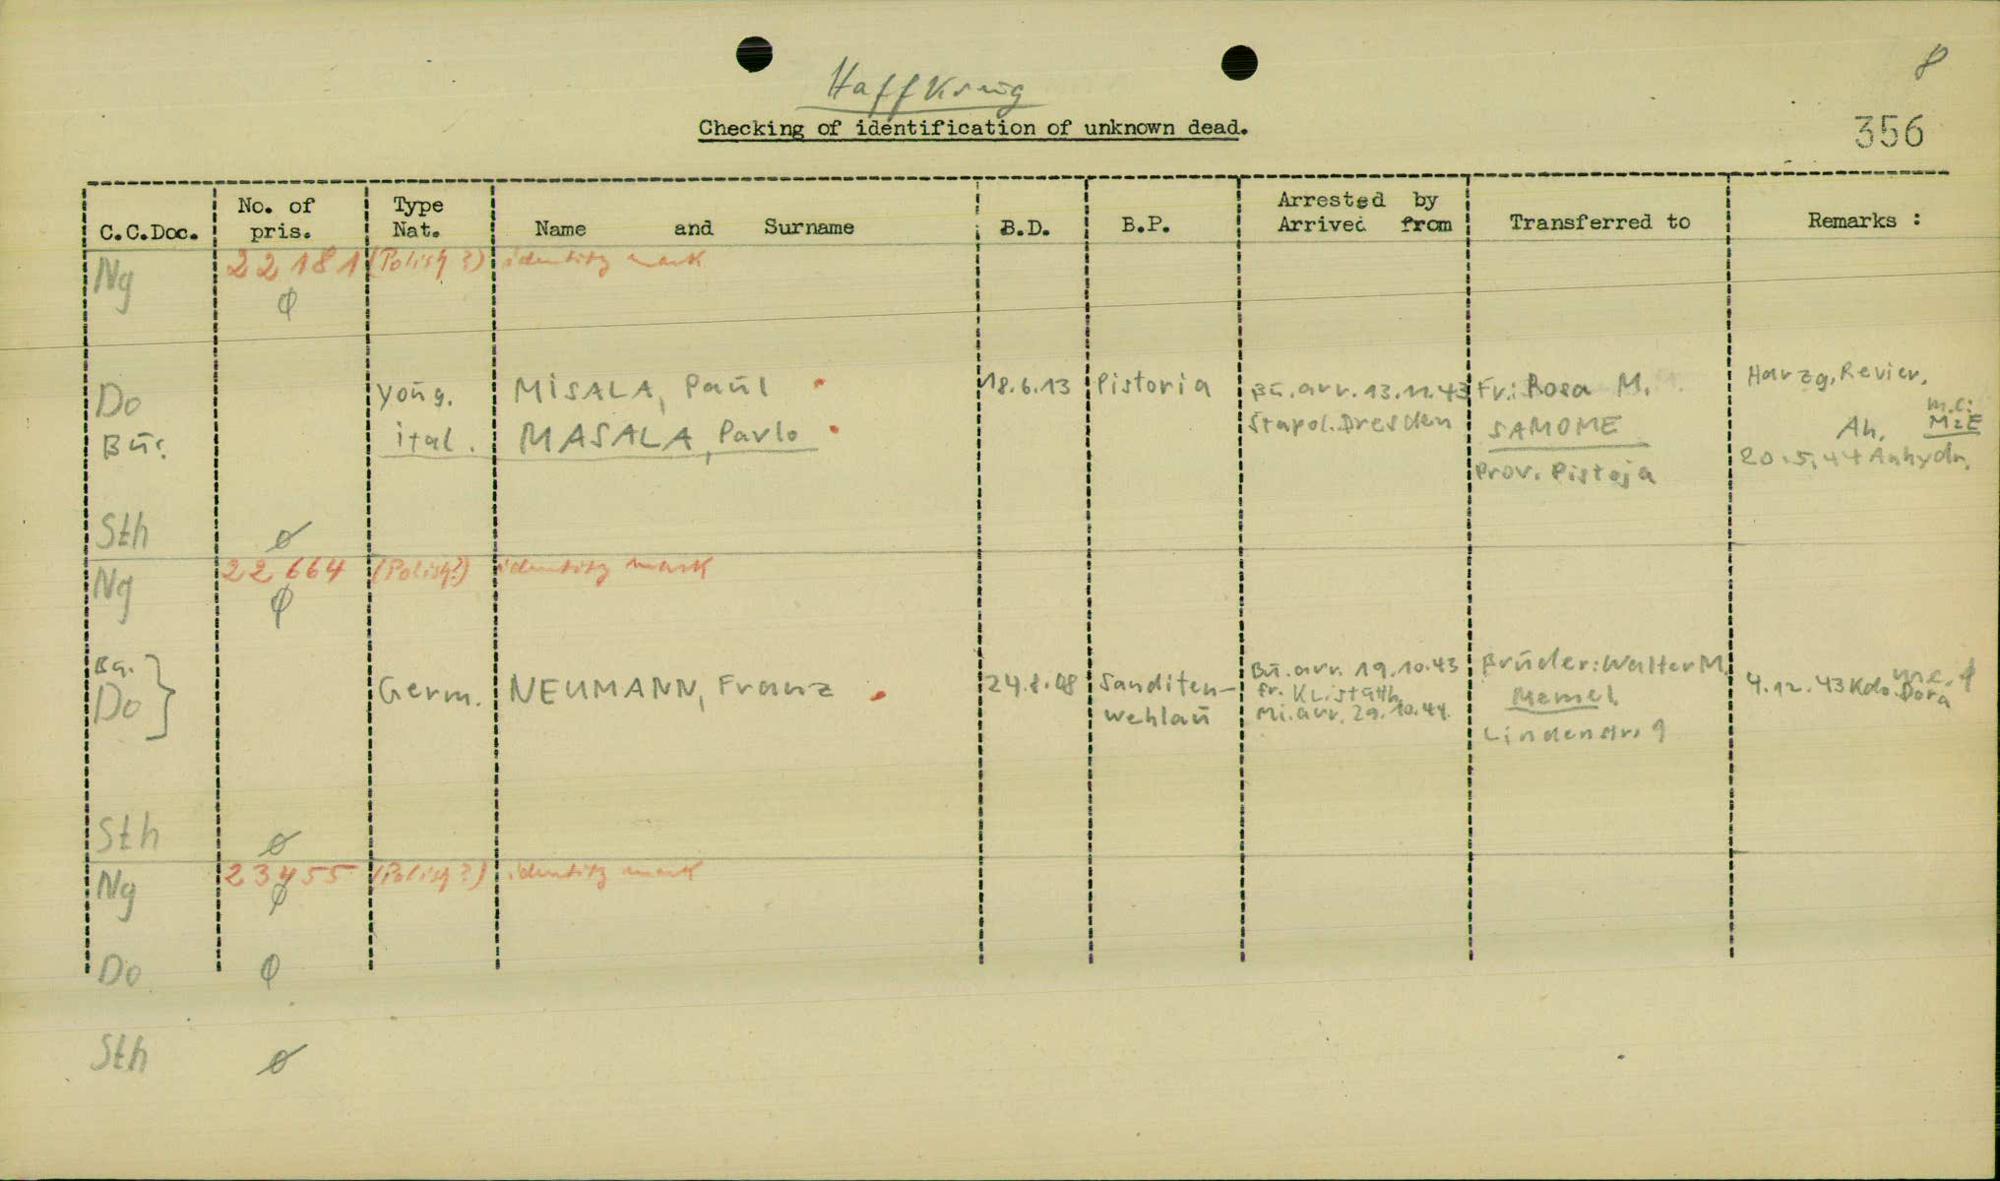 8
Haffkrug
Checking of identification of unknown dead.
356
C.C.Doc.
No. of pris.
Type Nat.
Name and Surname
B.D.
B.P.
Arrested by
Arrived from
Transferred to
Remarks :
Ng 22181 (Polish ?) identity mark
Ø
Do Youg. MISALA, Paul 18.6.13 Pistoria Bū.arr.13.11.43 Fr.: Rosa M. Harzg, Revier,
Bū. ital. MASALA, Pavlo Stapol.Dresden SAMOME Ah,
Prov. Pistoja 20.5.44 Anhydr.
Sth Ø
Ng 22664 (Polish?) identity mark
Ø
Do Germ. NEUMANN, Franz Sanditen-
wehlaū
Bū.arr. 19.10.43
Mi.arr. 29.10.44.
Brūder: Walter M.
Memel,
Lindenstr. 9
4.12.43 Kdo. Dora
Sth Ø
Ng 23455 (Polish ?) identity mark
Ø
Do Ø
Sth Ø